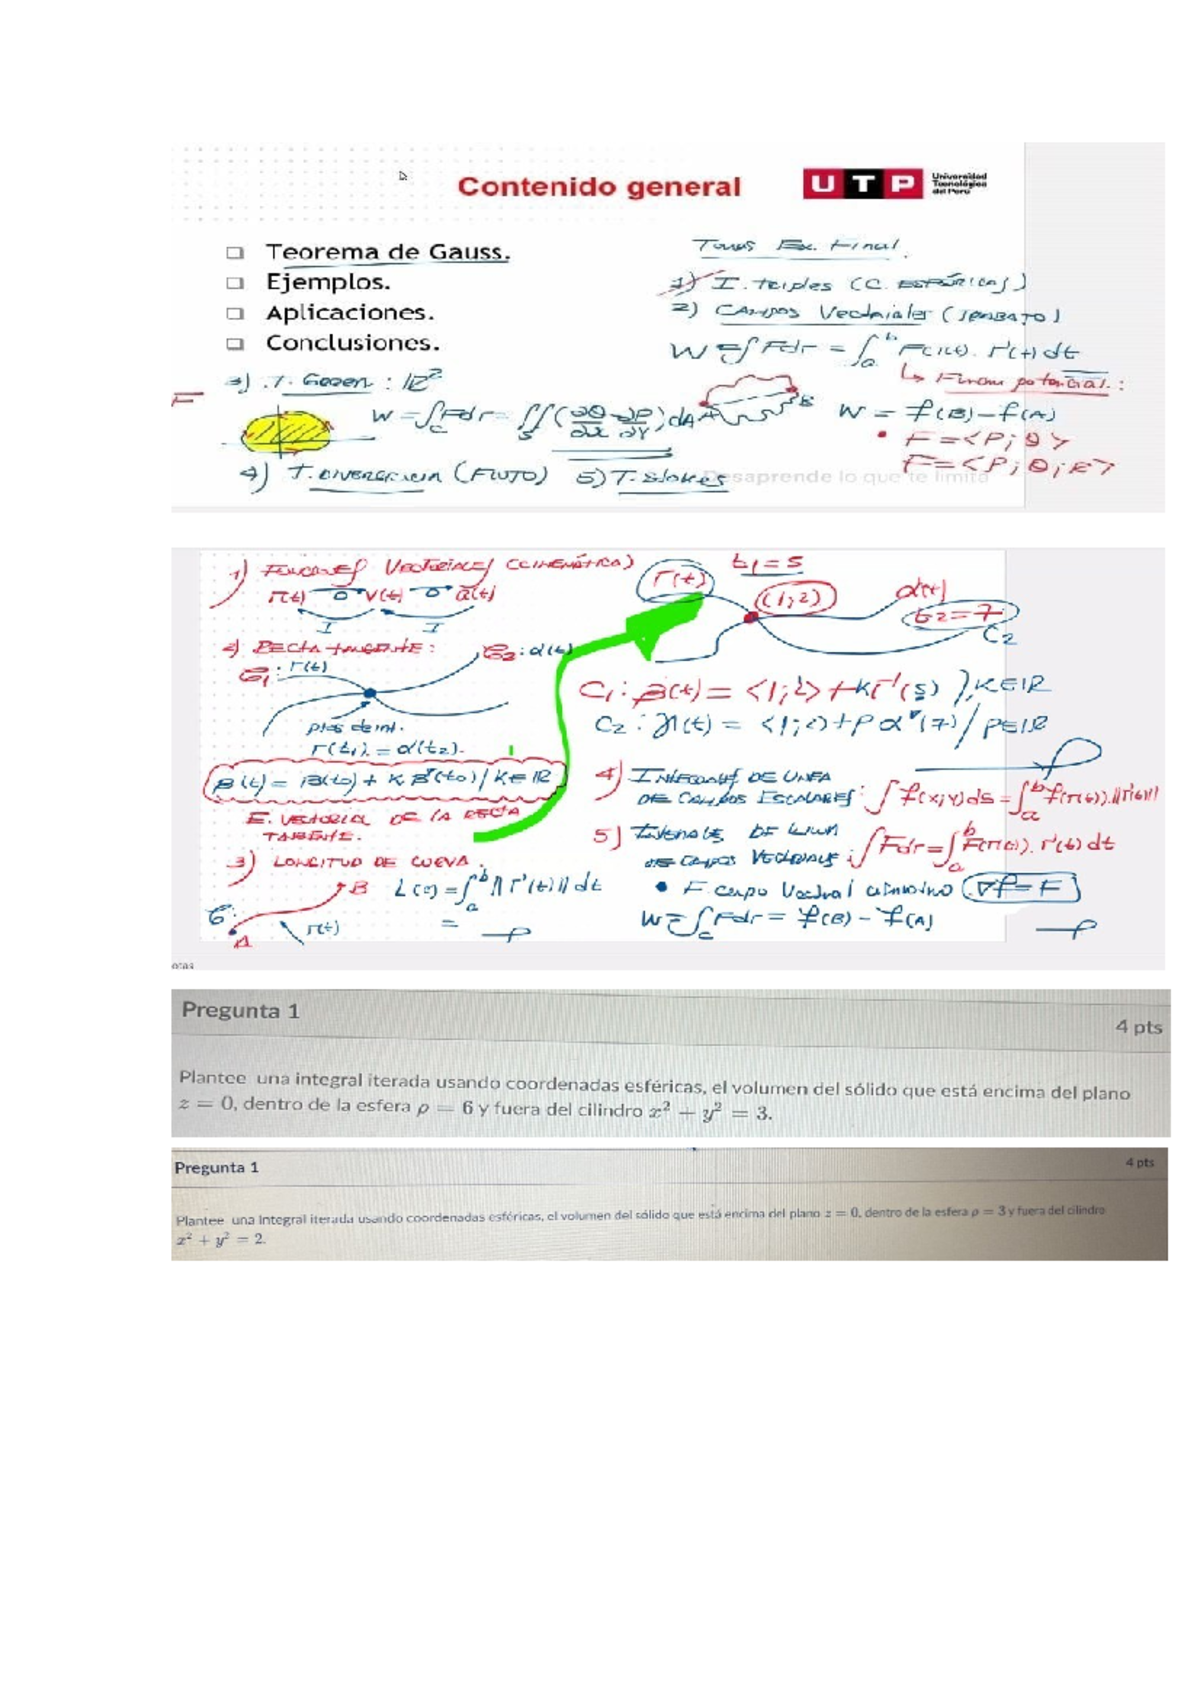 Contenido general
UTP Universidad Tecnológica del Perú
Teorema de Gauss.
Ejemplos.
Aplicaciones.
Conclusiones.
Temas Ex. Final.
1) I. Triples (C. ESFÉRICAS)
2) CAMPOS Vectoriales (TRABAJO)
W = ∫ F dr = ∫ₐᵇ F(r(t)). r'(t) dt
↳ Función potencial:
W = f(B) - f(A)
• F = <P; Q>
F = <P; Q; R>
3) T. Green: ℝ²
W = ∫_C F dr = ∬_S (∂Q/∂x - ∂P/∂y) dA
A B
4) T. DIVERGENCIA (FLUJO) 5) T. Stokes
Desaprende lo que te limita
1) FUNCIONES VECTORIALES (CINEMÁTICA)
r(t) D v(t) D a(t)
I I
2) RECTA TANGENTE:
C₁: r(t)
C₂: α(t)
ptos de int.
r(t₁) = α(t₂).
β(t) = β(t₀) + K β'(t₀) / K ∈ ℝ
E. VECTORIAL DE LA RECTA
TANGENTE.
3) LONGITUD DE CURVA.
C: A B r(t)
L(C) = ∫ₐᵇ ‖r'(t)‖ dt
=
r(t) t₁ = 5
(1;2) α(t)
t₂ = 7
C₂
C₁: β(t) = <1;2> + K r'(5) / K ∈ ℝ
C₂: η(t) = <1;2> + P α'(7) / P ∈ ℝ
4) INTEGRALES DE LINEA
DE CAMPOS ESCALARES: ∫ f(x;y) ds = ∫ₐᵇ f(r(t)). ‖r'(t)‖
5) INTEGRALES DE LINEA
DE CAMPOS VECTORIALES: ∫ F dr = ∫ₐᵇ F(r(t)). r'(t) dt
• F campo Vectorial ∇f = F
W = ∫_C F dr = f(B) - f(A)
Pregunta 1
4 pts
Plantee una integral iterada usando coordenadas esféricas, el volumen del sólido que está encima del plano
z = 0, dentro de la esfera ρ = 6 y fuera del cilindro x² + y² = 3.
Pregunta 1
4 pts
Plantee una integral iterada usando coordenadas esféricas, el volumen del sólido que está encima del plano z = 0, dentro de la esfera ρ = 3 y fuera del cilindro
x² + y² = 2.